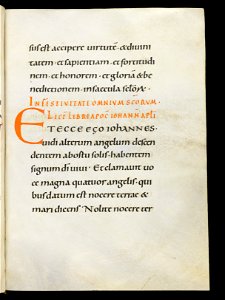 sus est accipere virtutē & divini
tatem & sapientiam et fortitudi
nem et honorem et gloriā & be
nedictionem in saecula
IN FESTIVITATE OMNIUM SCORUM
LEC LIBRI APOC IOHANN APLI
ET ECCE EGO IOHANNES
vidi alterum angelum descen
dentem ab ortu solis habentem
signum di vivi Et clamavit vo
ce magna quatuor angelis qui
bus datum est nocere terrae &
mari dicens Nolite nocere ter